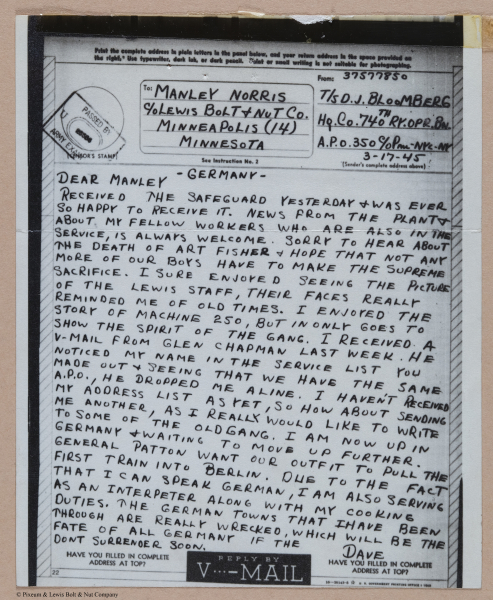 Print the complete address in plain letters in the panel below, and your return address in the space provided on
the right. Use typewriter, dark ink, or dark pencil. Faint or small writing is not suitable for photographing.
To:
MANLEY NORRIS
c/o LEWIS BOLT & NUT CO.
MINNEAPOLIS (14)
MINNESOTA
From: 37577850
T/5 D. J. BLOOMBERG
HQ. CO. 740TH RY. OPR. BN.
A.P.O. 350 c/o P.M.-NYC-NY
3-17-45
(Sender's complete address above)
PASSED BY
ARMY EXAMINER
(CENSOR'S STAMP)
See Instruction No. 2
DEAR MANLEY -GERMANY-
RECEIVED THE SAFEGUARD YESTERDAY & WAS EVER
SO HAPPY TO RECEIVE IT. NEWS FROM THE PLANT &
ABOUT MY FELLOW WORKERS WHO ARE ALSO IN THE
SERVICE, IS ALWAYS WELCOME. SORRY TO HEAR ABOUT
THE DEATH OF ART FISHER & HOPE THAT NOT ANY
MORE OF OUR BOYS HAVE TO MAKE THE SUPREME
SACRIFICE. I SURE ENJOYED SEEING THE PICTURE
OF THE LEWIS STAFF, THEIR FACES REALLY
REMINDED ME OF OLD TIMES. I ENJOYED THE
STORY OF MACHINE 250, BUT IN ONLY GOES TO
SHOW THE SPIRIT OF THE GANG. I RECEIVED A
V-MAIL FROM GLEN CHAPMAN LAST WEEK. HE
NOTICED MY NAME IN THE SERVICE LIST YOU
MADE OUT & SEEING THAT WE HAVE THE SAME
A.P.O., HE DROPPED ME A LINE. I HAVEN'T RECEIVED
MY ADDRESS LIST AS YET, SO HOW ABOUT SENDING
ME ANOTHER, AS I REALLY WOULD LIKE TO WRITE
TO SOME OF THE OLD GANG. I AM NOW UP IN
GERMANY & WAITING TO MOVE UP FURTHER.
GENERAL PATTON WANT OUR OUTFIT TO PULL THE
FIRST TRAIN INTO BERLIN. DUE TO THE FACT
THAT I CAN SPEAK GERMAN, I AM ALSO SERVING
AS AN INTERPETER ALONG WITH MY COOKING
DUTIES. THE GERMAN TOWNS THAT I HAVE BEEN
THROUGH ARE REALLY WRECKED, WHICH WILL BE THE
FATE OF ALL GERMANY IF THE
DONT SURRENDER SOON.
DAVE
HAVE YOU FILLED IN COMPLETE
ADDRESS AT TOP?
REPLY BY
V···-MAIL
HAVE YOU FILLED IN COMPLETE
ADDRESS AT TOP?
22
© Pixeum & Lewis Bolt & Nut Company